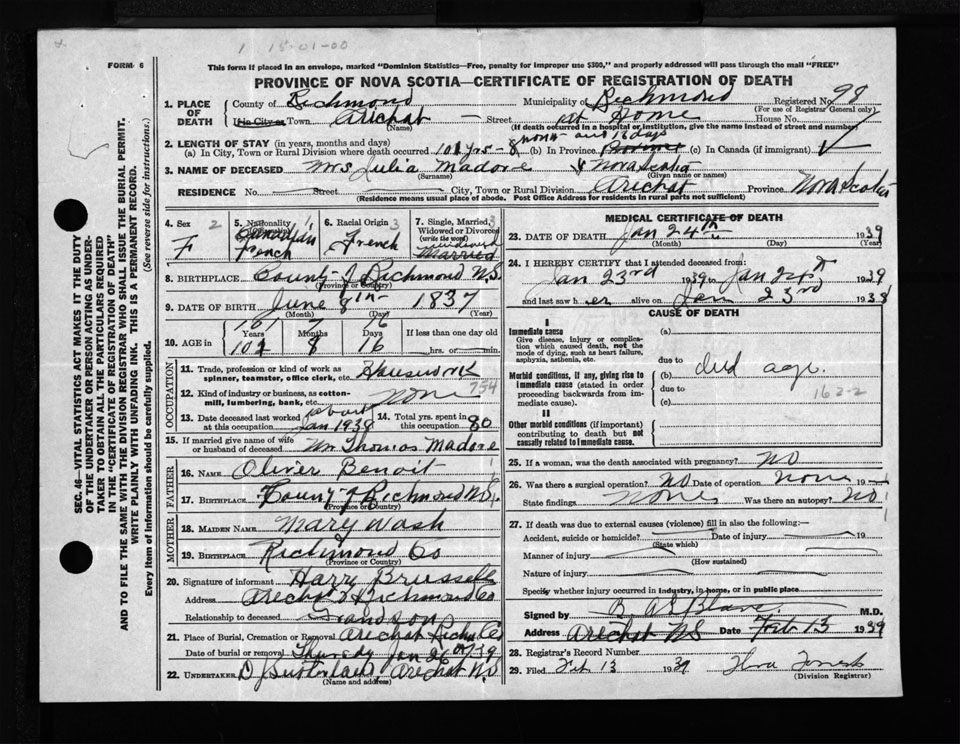 1 15-01-00
FORM 6
This form if placed in an envelope, marked "Dominion Statistics—Free, penalty for improper use $300," and properly addressed will pass through the mail "FREE"
PROVINCE OF NOVA SCOTIA—CERTIFICATE OF REGISTRATION OF DEATH
SEC. 46—VITAL STATISTICS ACT MAKES IT THE DUTY
OF THE UNDERTAKER OR PERSON ACTING AS UNDER-
TAKER TO OBTAIN ALL THE PARTICULARS REQUIRED
IN THE "CERTIFICATE OF REGISTRATION OF DEATH"
AND TO FILE THE SAME WITH THE DIVISION REGISTRAR WHO SHALL ISSUE THE BURIAL PERMIT.
WRITE PLAINLY WITH UNFADING INK. THIS IS A PERMANENT RECORD.
Every item of Information should be carefully supplied. (See reverse side for instructions.)
1. PLACE OF DEATH County of Richmond Municipality of Richmond Registered No. 98
(For use of Registrar General only)
If in City or Town Arichat — Street at Home House No.
(Name) (If death occurred in a hospital or institution, give the name instead of street and number)
2. LENGTH OF STAY (in years, months and days) month and 16 days
(a) In City, Town or Rural Division where death occurred 101 yrs - 8 (b) In Province (c) In Canada (if immigrant)
3. NAME OF DECEASED Mrs Julia Madore Nova Scotia
(Surname) (Given name or names)
RESIDENCE No. Street City, Town or Rural Division Arichat Province Nova Scotia
(Residence means usual place of abode. Post Office Address for residents in rural parts not sufficient)
4. Sex 2 F
5. Nationality Canadian French
6. Racial Origin 3 French
7. Single, Married, Widowed or Divorced (write the word) 3 widowed Married
8. BIRTHPLACE County of Richmond N.S.
(Province or Country)
9. DATE OF BIRTH June 8th 1837
(Month) (Day) (Year)
10. AGE in Years Months Days If less than one day old
101 7 6
101 8 16 hrs. or min.
OCCUPATION
11. Trade, profession or kind of work as spinner, teamster, office clerk, etc. Housework
12. Kind of industry or business, as cotton-mill, lumbering, bank, etc. none 754
13. Date deceased last worked at this occupation about Jan 1938 14. Total yrs. spent in this occupation 80
15. If married give name of wife or husband of deceased Wm Thomas Madore
FATHER
16. NAME Oliver Benoit
17. BIRTHPLACE County of Richmond N.S.
(Province or Country)
MOTHER
18. MAIDEN NAME Mary Wash
19. BIRTHPLACE Richmond Co
(Province or Country)
20. Signature of informant Harry Brussell
Address Arichat Richmond Co
Relationship to deceased Grandson
21. Place of Burial, Cremation or Removal Arichat Richm Co
Date of burial or removal Thursday Jan 26th 1939
22. UNDERTAKER Arichat N.S
(Name and address)
MEDICAL CERTIFICATE OF DEATH
23. DATE OF DEATH Jan 24th 1939
(Month) (Day) (Year)
24. I HEREBY CERTIFY that I attended deceased from:
Jan 23rd 1939 to Jan 24th 1939
and last saw her alive on Jan 23rd 1938
CAUSE OF DEATH
I
Immediate cause
Give disease, injury or complication which caused death, not the mode of dying, such as heart failure, asphyxia, asthenia, etc.
(a)
due to
Morbid conditions, if any, giving rise to immediate cause (stated in order proceeding backwards from immediate cause).
(b) old age
due to 162-2
(c)
II
Other morbid conditions (if important) contributing to death but not causally related to immediate cause.
25. If a woman, was the death associated with pregnancy? NO
26. Was there a surgical operation? NO Date of operation none 19
State findings None Was there an autopsy? NO
27. If death was due to external causes (violence) fill in also the following:—
Accident, suicide or homicide? Date of injury 19
(State which)
Manner of injury
(How sustained)
Nature of injury
Specify whether injury occurred in industry, in home, or in public place
Signed by M.D.
Address Arichat N.S Date Feb 13 1939
28. Registrar's Record Number
29. Filed Feb 13 1939
(Division Registrar)